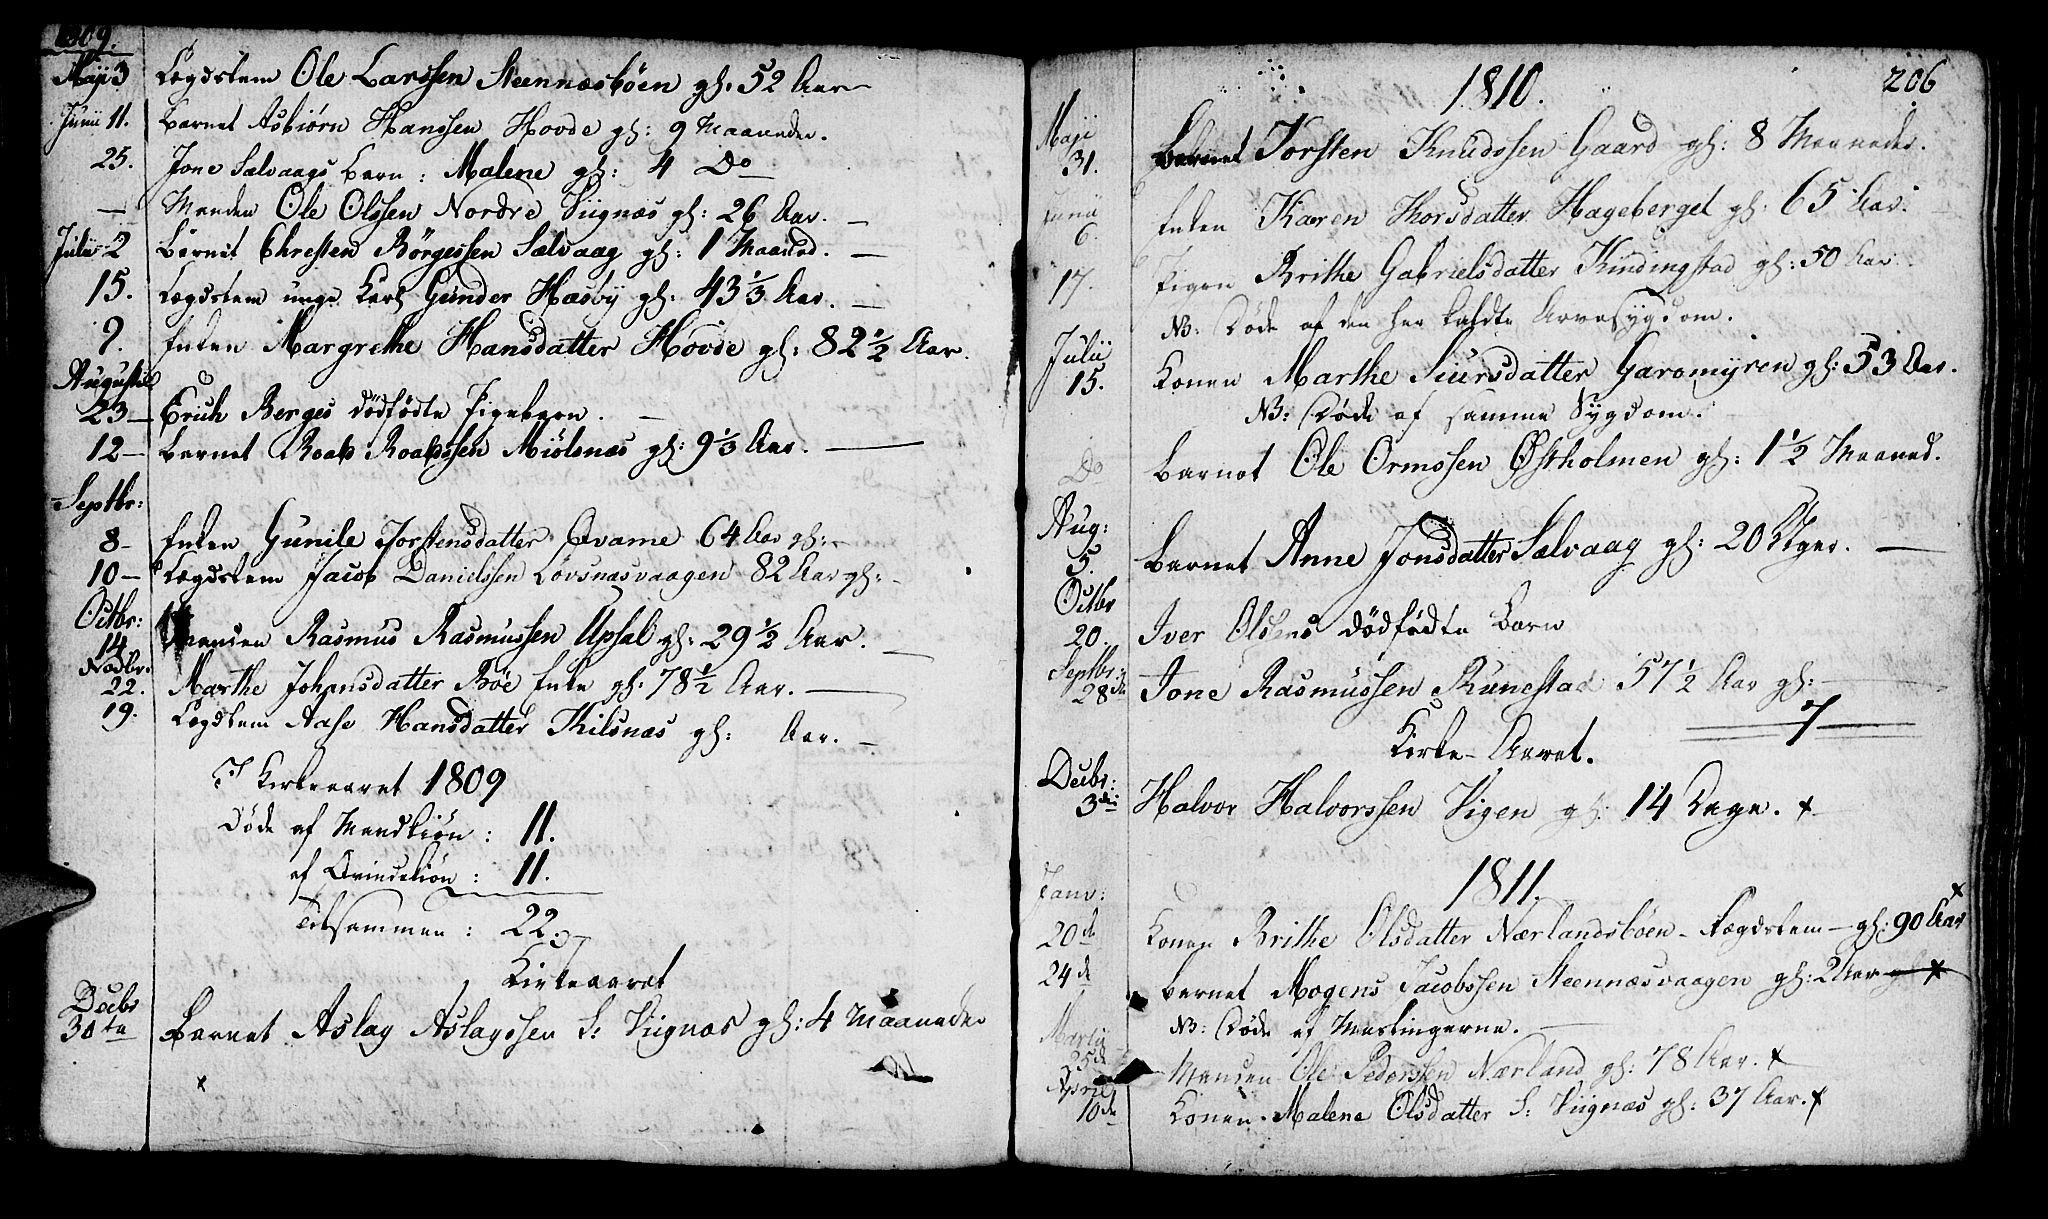 1809.
Maji 3 Lægdslem Ole Larssen Steennæsbøen gl: 52 Aar
Junii 11. Barnet Asbiørn Hanssen Hovde gl: 9 Maaneder.
25. Jone Sælvaags Barn: Malene gl: 4 Do
— Manden Ole Olssen Nordre Viignæs gl: 26 Aar. —
Julii 2 Barnet Christen Børgessen Sælvaag gl: 1 Maaned. —
15. Lægdslem unge Karl Gunder Hæsby gl: 43 1/3 Aar. —
9. Enken Margrethe Hansdatter Hovde gl: 82 1/2 Aar.
Augusti
23 — Erich Berges dödfödte Pigebarn. —
12 — Barnet Roald Roaldssen Miölsnæs gl: 9 1/3 Aar. —
Septbr:
8 — Enken Gunile Torstensdatter Qvame 64 Aar gl: —
10 — Lægdslem Jacob Danielssen Lovsnæsvaagen 82 Aar gl: —
Octbr:
14 Manden Rasmus Rasmussen Upsal gl: 29 1/2 Aar. —
Novbr:
22. Marthe Johnsdatter Böe Enke gl: 78 1/2 Aar. —
19. Lægdslem Aase Hansdatter Kilsnæs gl: Aar. —
I Kirkeaaret 1809
Döde af Mandkiön: 11.
af Qvindekiön: 11.
Tilsammen: 22.
Kirkeaaret
Decbr
30te Barnet Aslag Aslagssen S: Viignæs gl: 4 Maaneder
x
206
1810.
Maji
31. Barnet Torsten Knudssen Gaard gl: 8 Maaneder.
Junii
6. Enken Karen Thorsdatter Hageberget gl: 65 Aar. —
17. Pigen Brithe Gabrielsdatter Kindingstad gl: 50 Aar
NB: Döde af den her kaldte Arvesygdom.
Julii
15. Konen Marthe Siursdatter Garomyren gl: 53 Aar.
NB: Döde af samme Sygdom.
Do Barnet Ole Ormssen Østholmen gl: 1 1/2 Maaned.
Aug:
5. Barnet Anne Jonsdatter Sælvaag gl: 20 Uger. —
Octbr
20. Iver Olsens dödfödte Barn
Septbr:
28de Jone Rasmussen Runestad 57 1/2 Aar gl: —
7
Kirke-Aaret.
Decbr:
3die Halvor Halvorssen Vigen gl: 14 Dage. x
1811.
Janv:
20de Konen Brithe Olsdatter Nærlandsböen — Lægdslem — gl: 90 Aar x
24de Barnet Mogens Jacobssen Steennæsvaagen gl: 2 Aar x
NB: Döde af Meslingerne. —
Martij
25de Manden Ole Pederssen Nærland gl: 78 Aar. x
April
10de Konen Malene Olsdatter S: Viignæs gl: 37 Aar. x